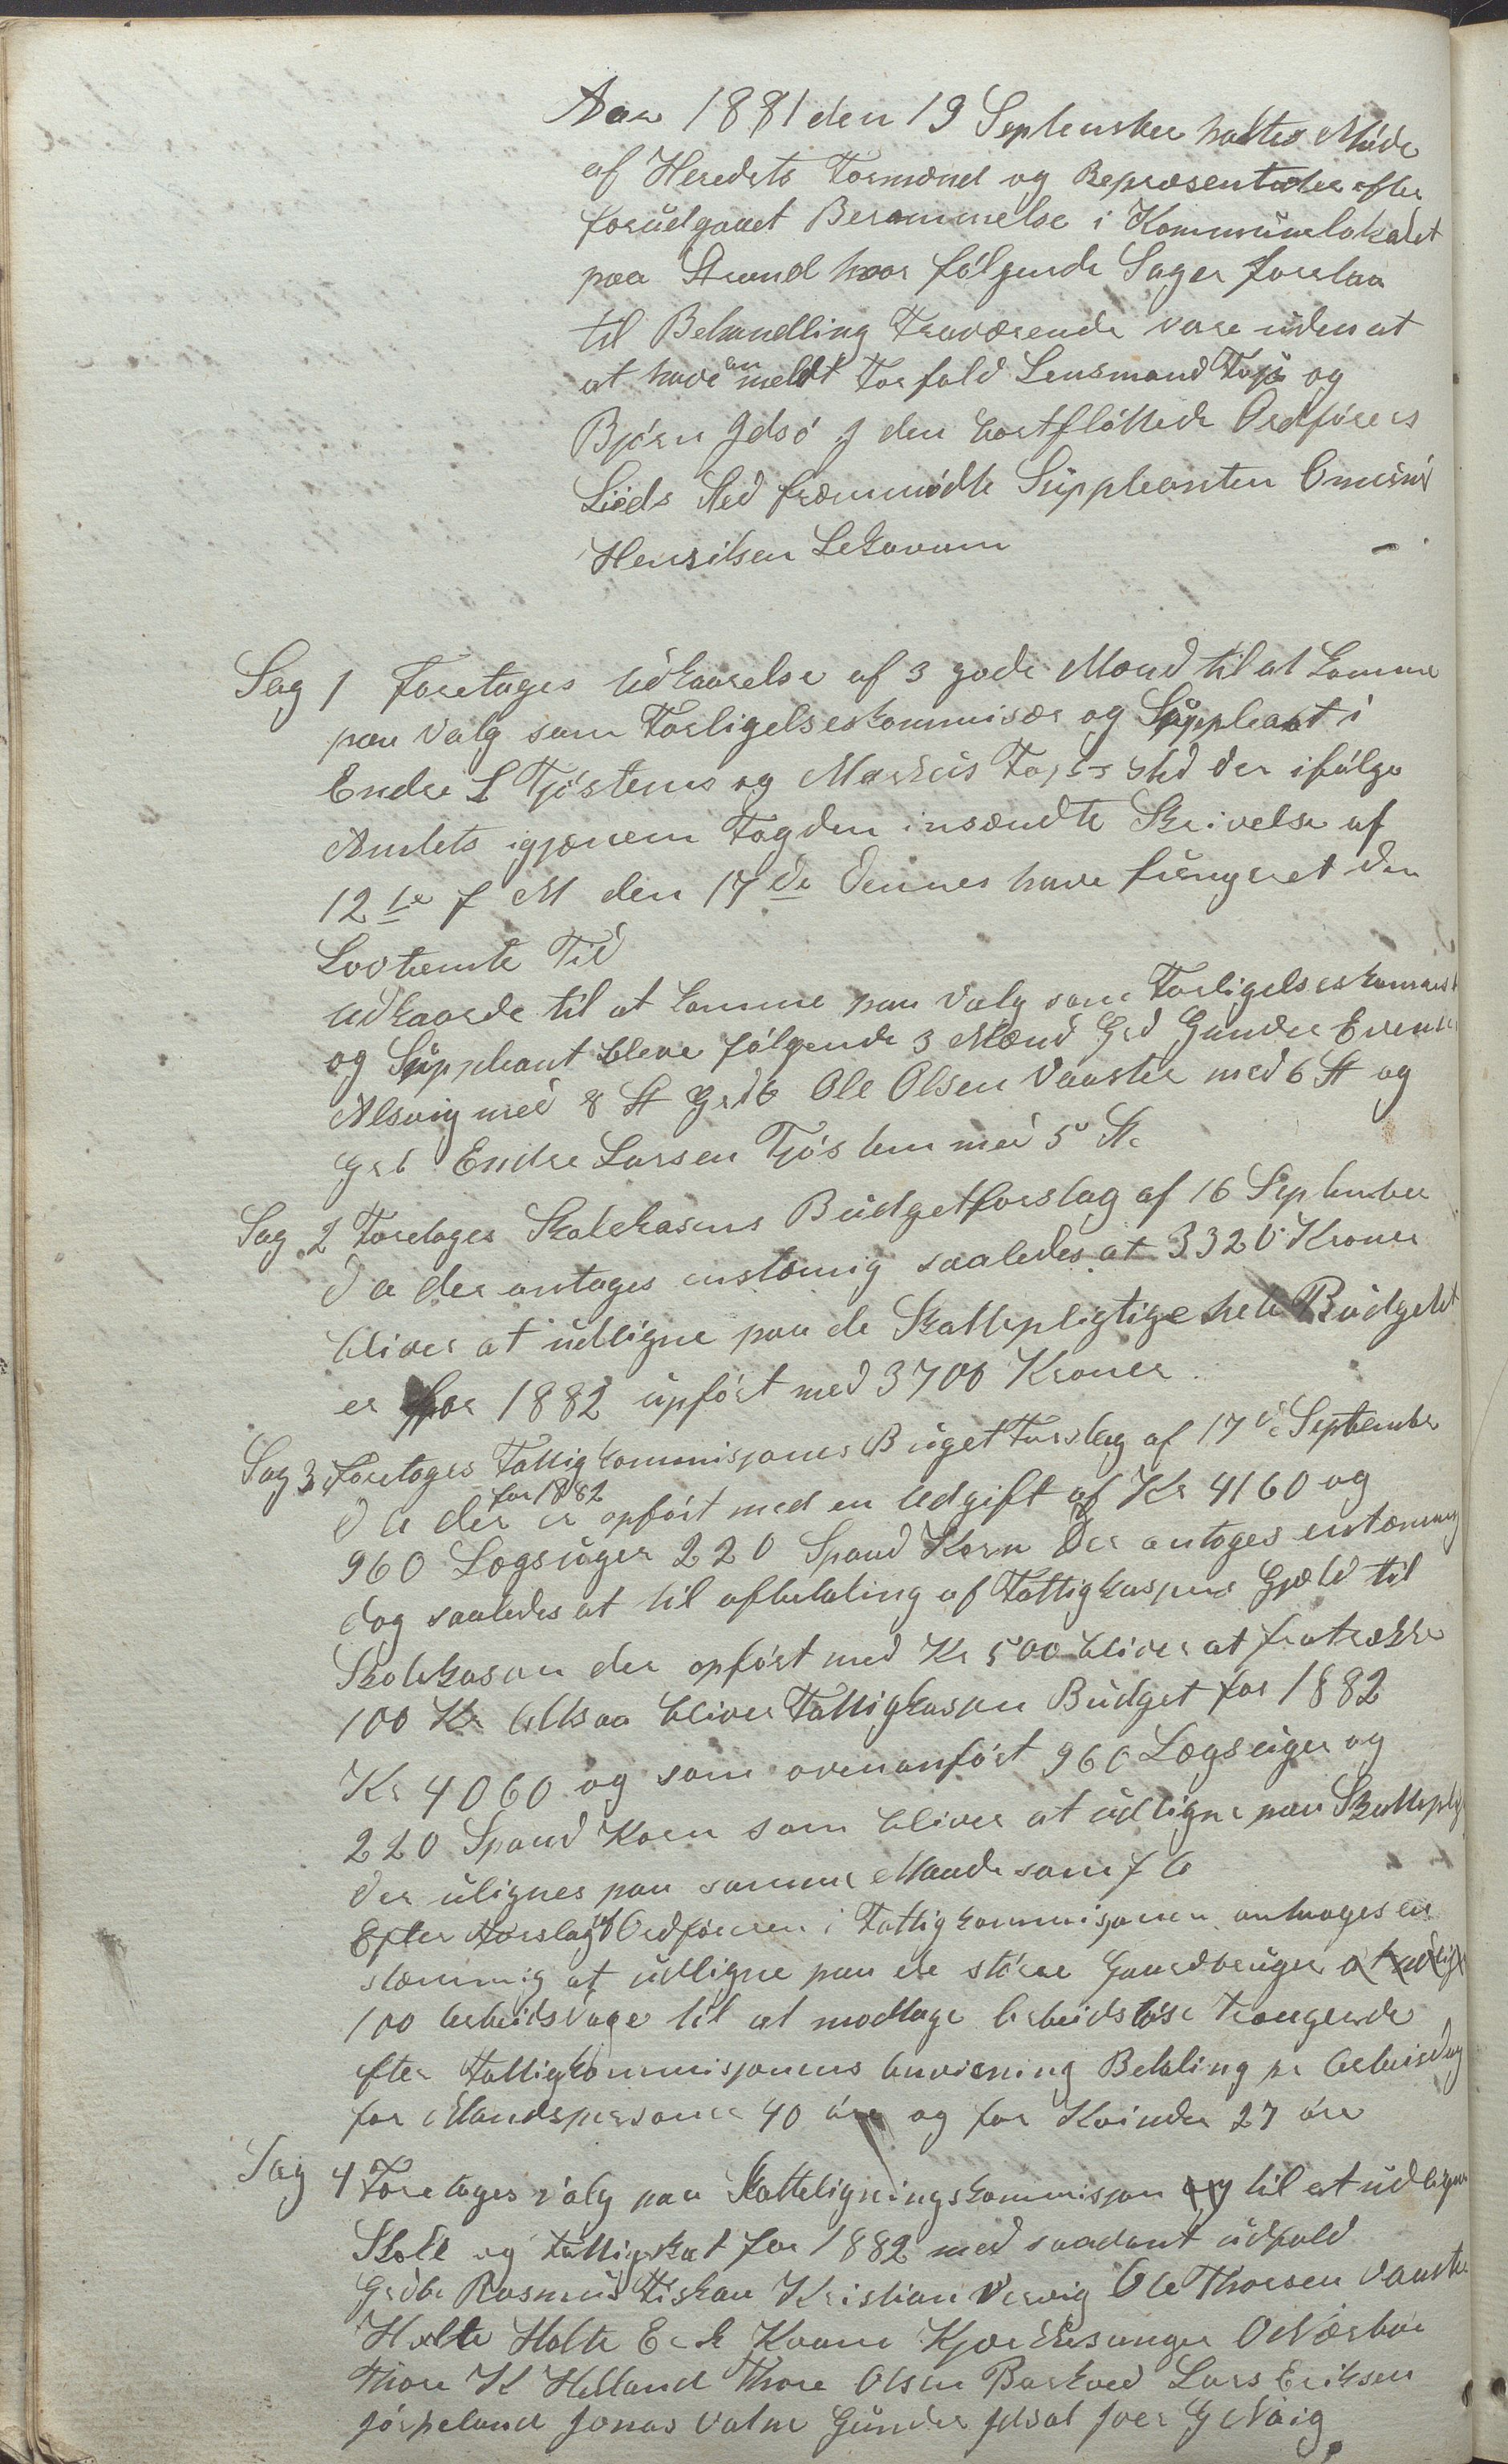 Aar 1881 den 19 September holtes Møde
af Heredets Formænd og Repræsentater efter
forudgaaet Berammelse i Kommunelokalet
paa Strand hvor følgende Sager forelaa
til Behandling Fraværende vare uden at
at have anmeldt Forfald Lensmand Fops og
Bjørn Idsø I den bortfløttede Ordførers
Liids Sted fræmmødte Suppleanten
Henriksen Lekvam
Sag 1 Foretages Udkaarelse af 3 gode Mænd til at komme
paa Valg som Forligelseskommisær og Suppleant i
Endre L Tjøstems og Markus Fops Sted der ifølge
Amtets igjænem Fogden insændte Skrivelse af
12te f M den 17de dennes have fungeret den
Lovbemte Tid
Udkaarde til at komme paa Valg som Forligelseskommis
og Suppleant bleve følgende 3 Mænd Grd Gunder
Alsvig med 8 St Grdb Ole Olsen Vaaster med 6 St og
Grb Endre Larsen Tjøstem med 5 St
Sag 2 Foretages Skolekasens Budgetforslag af 16 September
d a der antages enstæmig saaledes at 3320 Kroner
bliver at udligne paa de Skattepligtige hele Budgetet
er for 1882 upført med 3700 Kroner
Sag 3 Foretages Fattigkommisjones Buget Forslag af 17de September
d a der for 1882 er opført med en Udgift af Kr 4160 og
960 Lægsuger 220 Spand Korn Der antoges enstæmmig
dog saaledes at til afbetaling af Fattigkasens Gjæld til
Skolekasen der opført med Kr 500 bliver at fratrække
100 Kr Altsaa bliver Fattigkasen Budget for 1882
Kr 4060 og som ovenanført 960 Lægsuger og
220 Spand Korn som bliver at udligne paa Skattepl
der ulignes paa samme Maade som f A
Efter Forslag af Ordføreren i Fattigkommisjonen antoges en
stæmmig at udligne paa de støre Gaardbruger at udlign
100 arbeidsdage til at modtage arbeidsløse trængende
efter Fattigkommisjonens anvisning Betaling pr Arbeisdag
for Mandspersoner 40 øre og for Kvinder 27 øre
Sag 4 Foretages valg paa Skatteligningskommisjon og til at udligne
Skole og Fattigskat for 1882 med saadant udfald
Grdbr Rasmus Fiskaa Kristian Vervig Ole Thorsen Vaaste
Holte Holte Erik Kvame Kjør O Nærbø
Thore K Helland Thore Olsen Barkved Lars Eriksen
Jørpeland Jonas Vatne Gunder Idsal Iver G Nåig